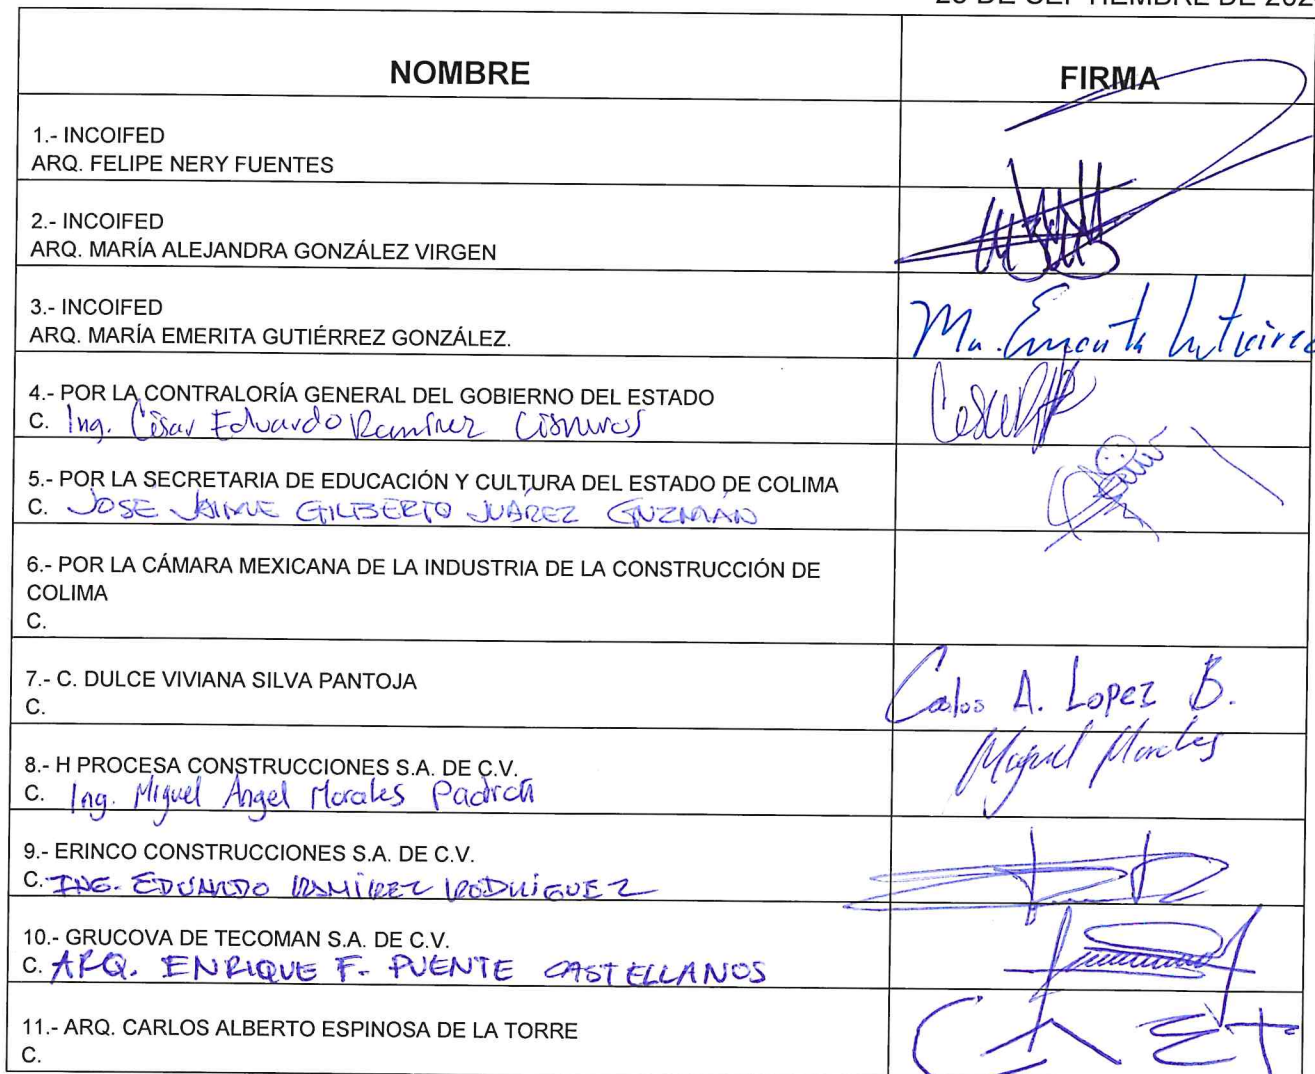 DE SEPTIEMBRE DE 202
NOMBRE
FIRMA
1.- INCOIFED
ARQ. FELIPE NERY FUENTES
2.- INCOIFED
ARQ. MARÍA ALEJANDRA GONZÁLEZ VIRGEN
3.- INCOIFED
ARQ. MARÍA EMERITA GUTIÉRREZ GONZÁLEZ.
Ma. Emerita Gutierrez
4.- POR LA CONTRALORÍA GENERAL DEL GOBIERNO DEL ESTADO
C. Ing. César Eduardo Ramírez Cisneros
5.- POR LA SECRETARIA DE EDUCACIÓN Y CULTURA DEL ESTADO DE COLIMA
C. JOSE JAIME GILBERTO JUÁREZ GUZMÁN
6.- POR LA CÁMARA MEXICANA DE LA INDUSTRIA DE LA CONSTRUCCIÓN DE
COLIMA
C.
7.- C. DULCE VIVIANA SILVA PANTOJA
C.
Carlos A. Lopez B.
8.- H PROCESA CONSTRUCCIONES S.A. DE C.V.
C. Ing. Miguel Angel Morales Padrón
Miguel Morales
9.- ERINCO CONSTRUCCIONES S.A. DE C.V.
C. ING. EDUARDO RAMIREZ RODRIGUEZ
10.- GRUCOVA DE TECOMAN S.A. DE C.V.
C. ARQ. ENRIQUE F. PUENTE CASTELLANOS
11.- ARQ. CARLOS ALBERTO ESPINOSA DE LA TORRE
C.